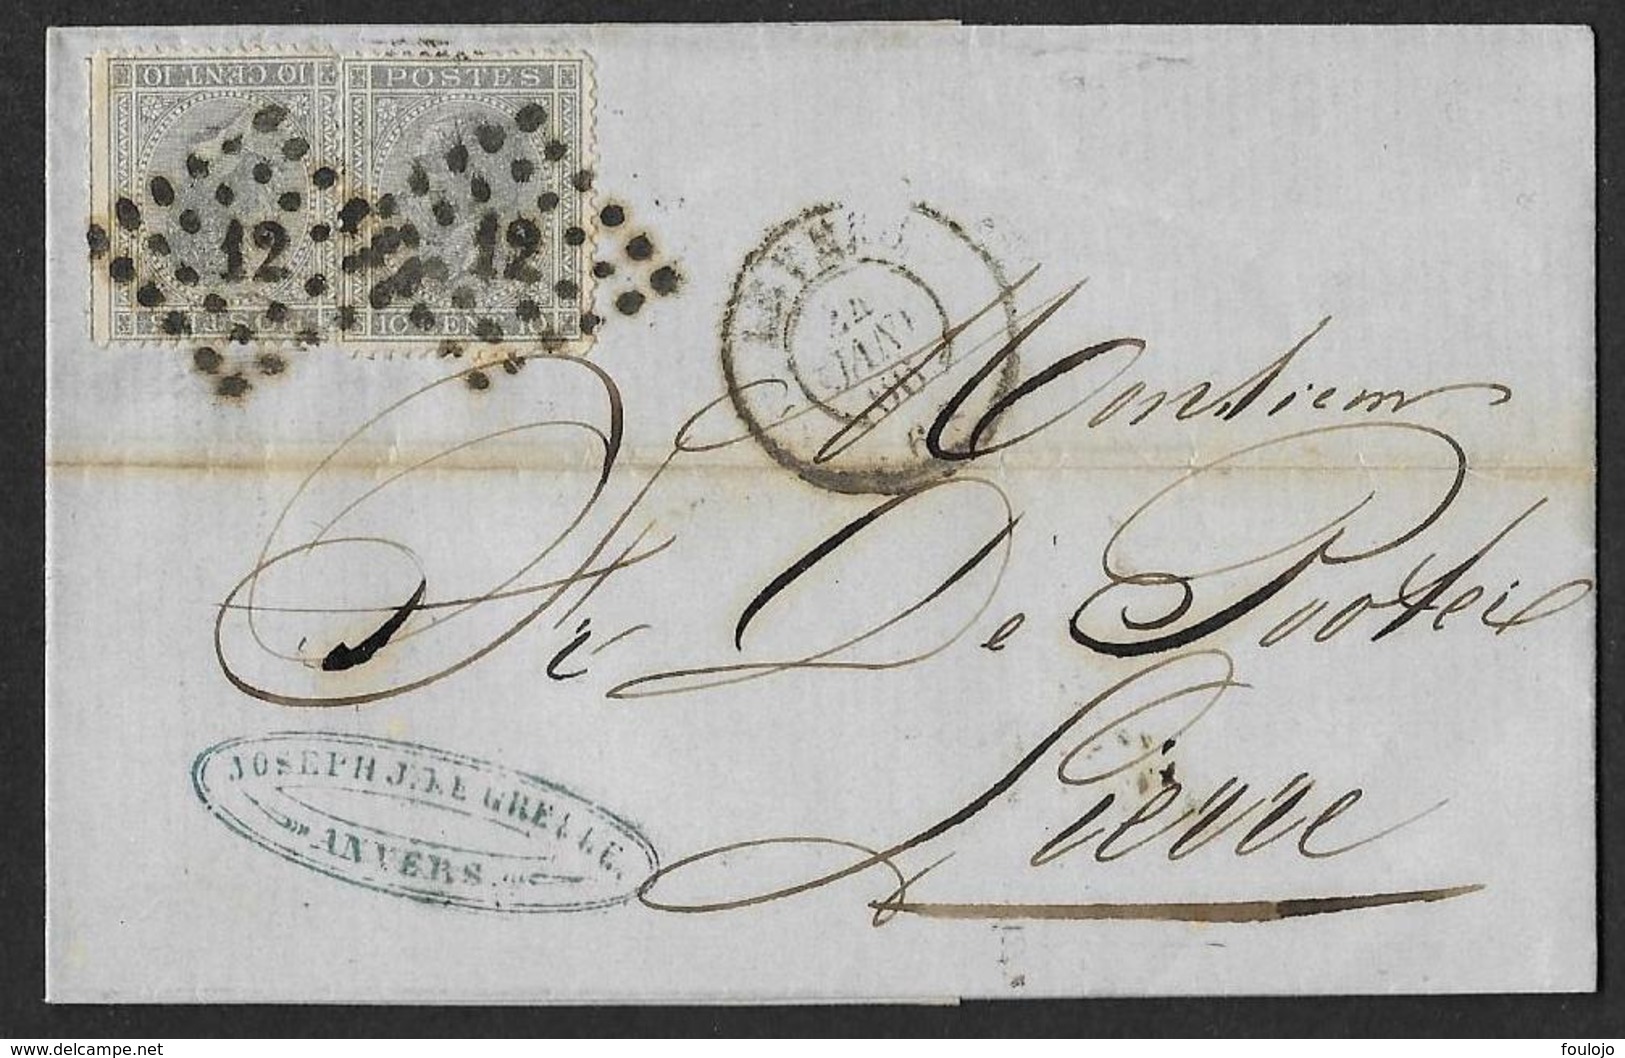 10 CENT. 10
POSTES
12
12
10 CENT. 10
ANVERS
JANV
Monsieur
De Pooter
Lierre
JOSEPH J. LE GRELLE.
ANVERS
delcampe.net
foulojo